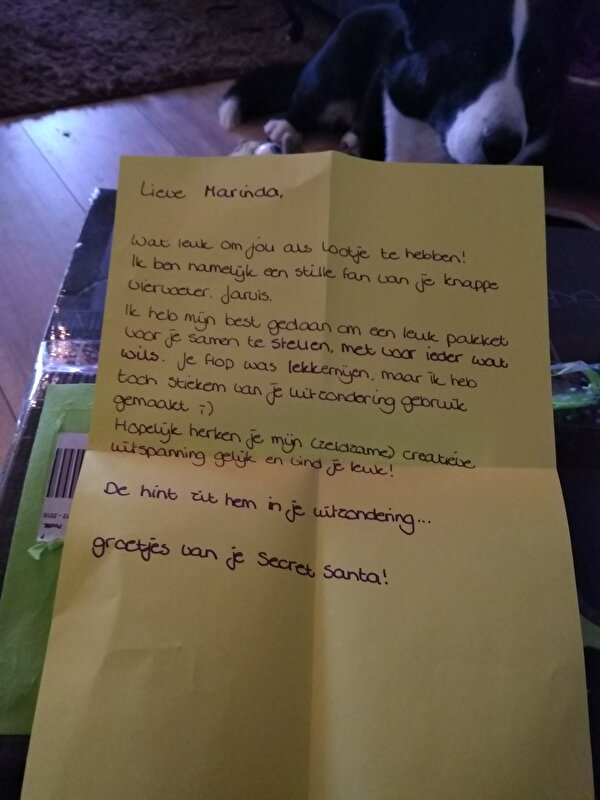 Lieve Marinda,
Wat leuk om jou als lootje te hebben!
Ik ben namelijk een stille fan van je knappe
viervoeter, Jarvis.
Ik heb mijn best gedaan om een leuk pakket
voor je samen te stellen, met voor ieder wat
wils. Je flop was lekkernijen, maar ik heb
toch stiekem van je uitzondering gebruik
gemaakt ;)
Hopelijk herken je mijn (zeldzame) creatieve
uitspanning gelijk en vind je leuk!
De hint zit hem in je uitzondering...
groetjes van je Secret Santa!